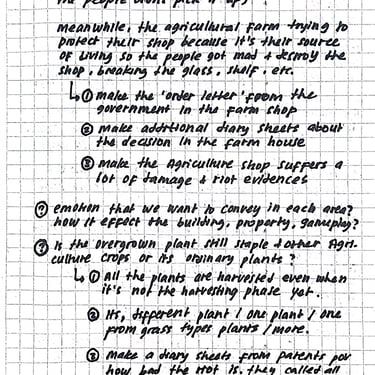 the people didn't pick it up)
meanwhile, the agricultural farm trying to
protect their shop because it's their source
of living so the people got mad & destroy the
shop, breaking the glass, shelf, etc.
↳ ① make the 'order letter' from the
government in the farm shop
② make additional diary sheets about
the decision in the farm house
③ make the Agriculture shop suffers a
lot of damage & riot evidences
? emotion that we want to convey in each area?
how it effect the building, property, gameplay?
? Is the overgrown plant still staple & other Agri-
culture crops or its ordinary plants?
↳ ① All the plants are harvested even when
it's not the harvesting phase yet.
② Its, different plant / one plant / one
from grass types plants / more.
③ make a diary sheets from patents pov
how bad the riot is, they called all